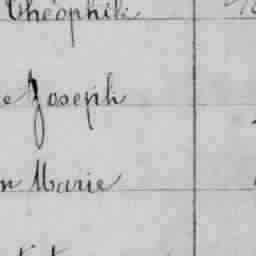 Théophile
e Joseph
n Marie